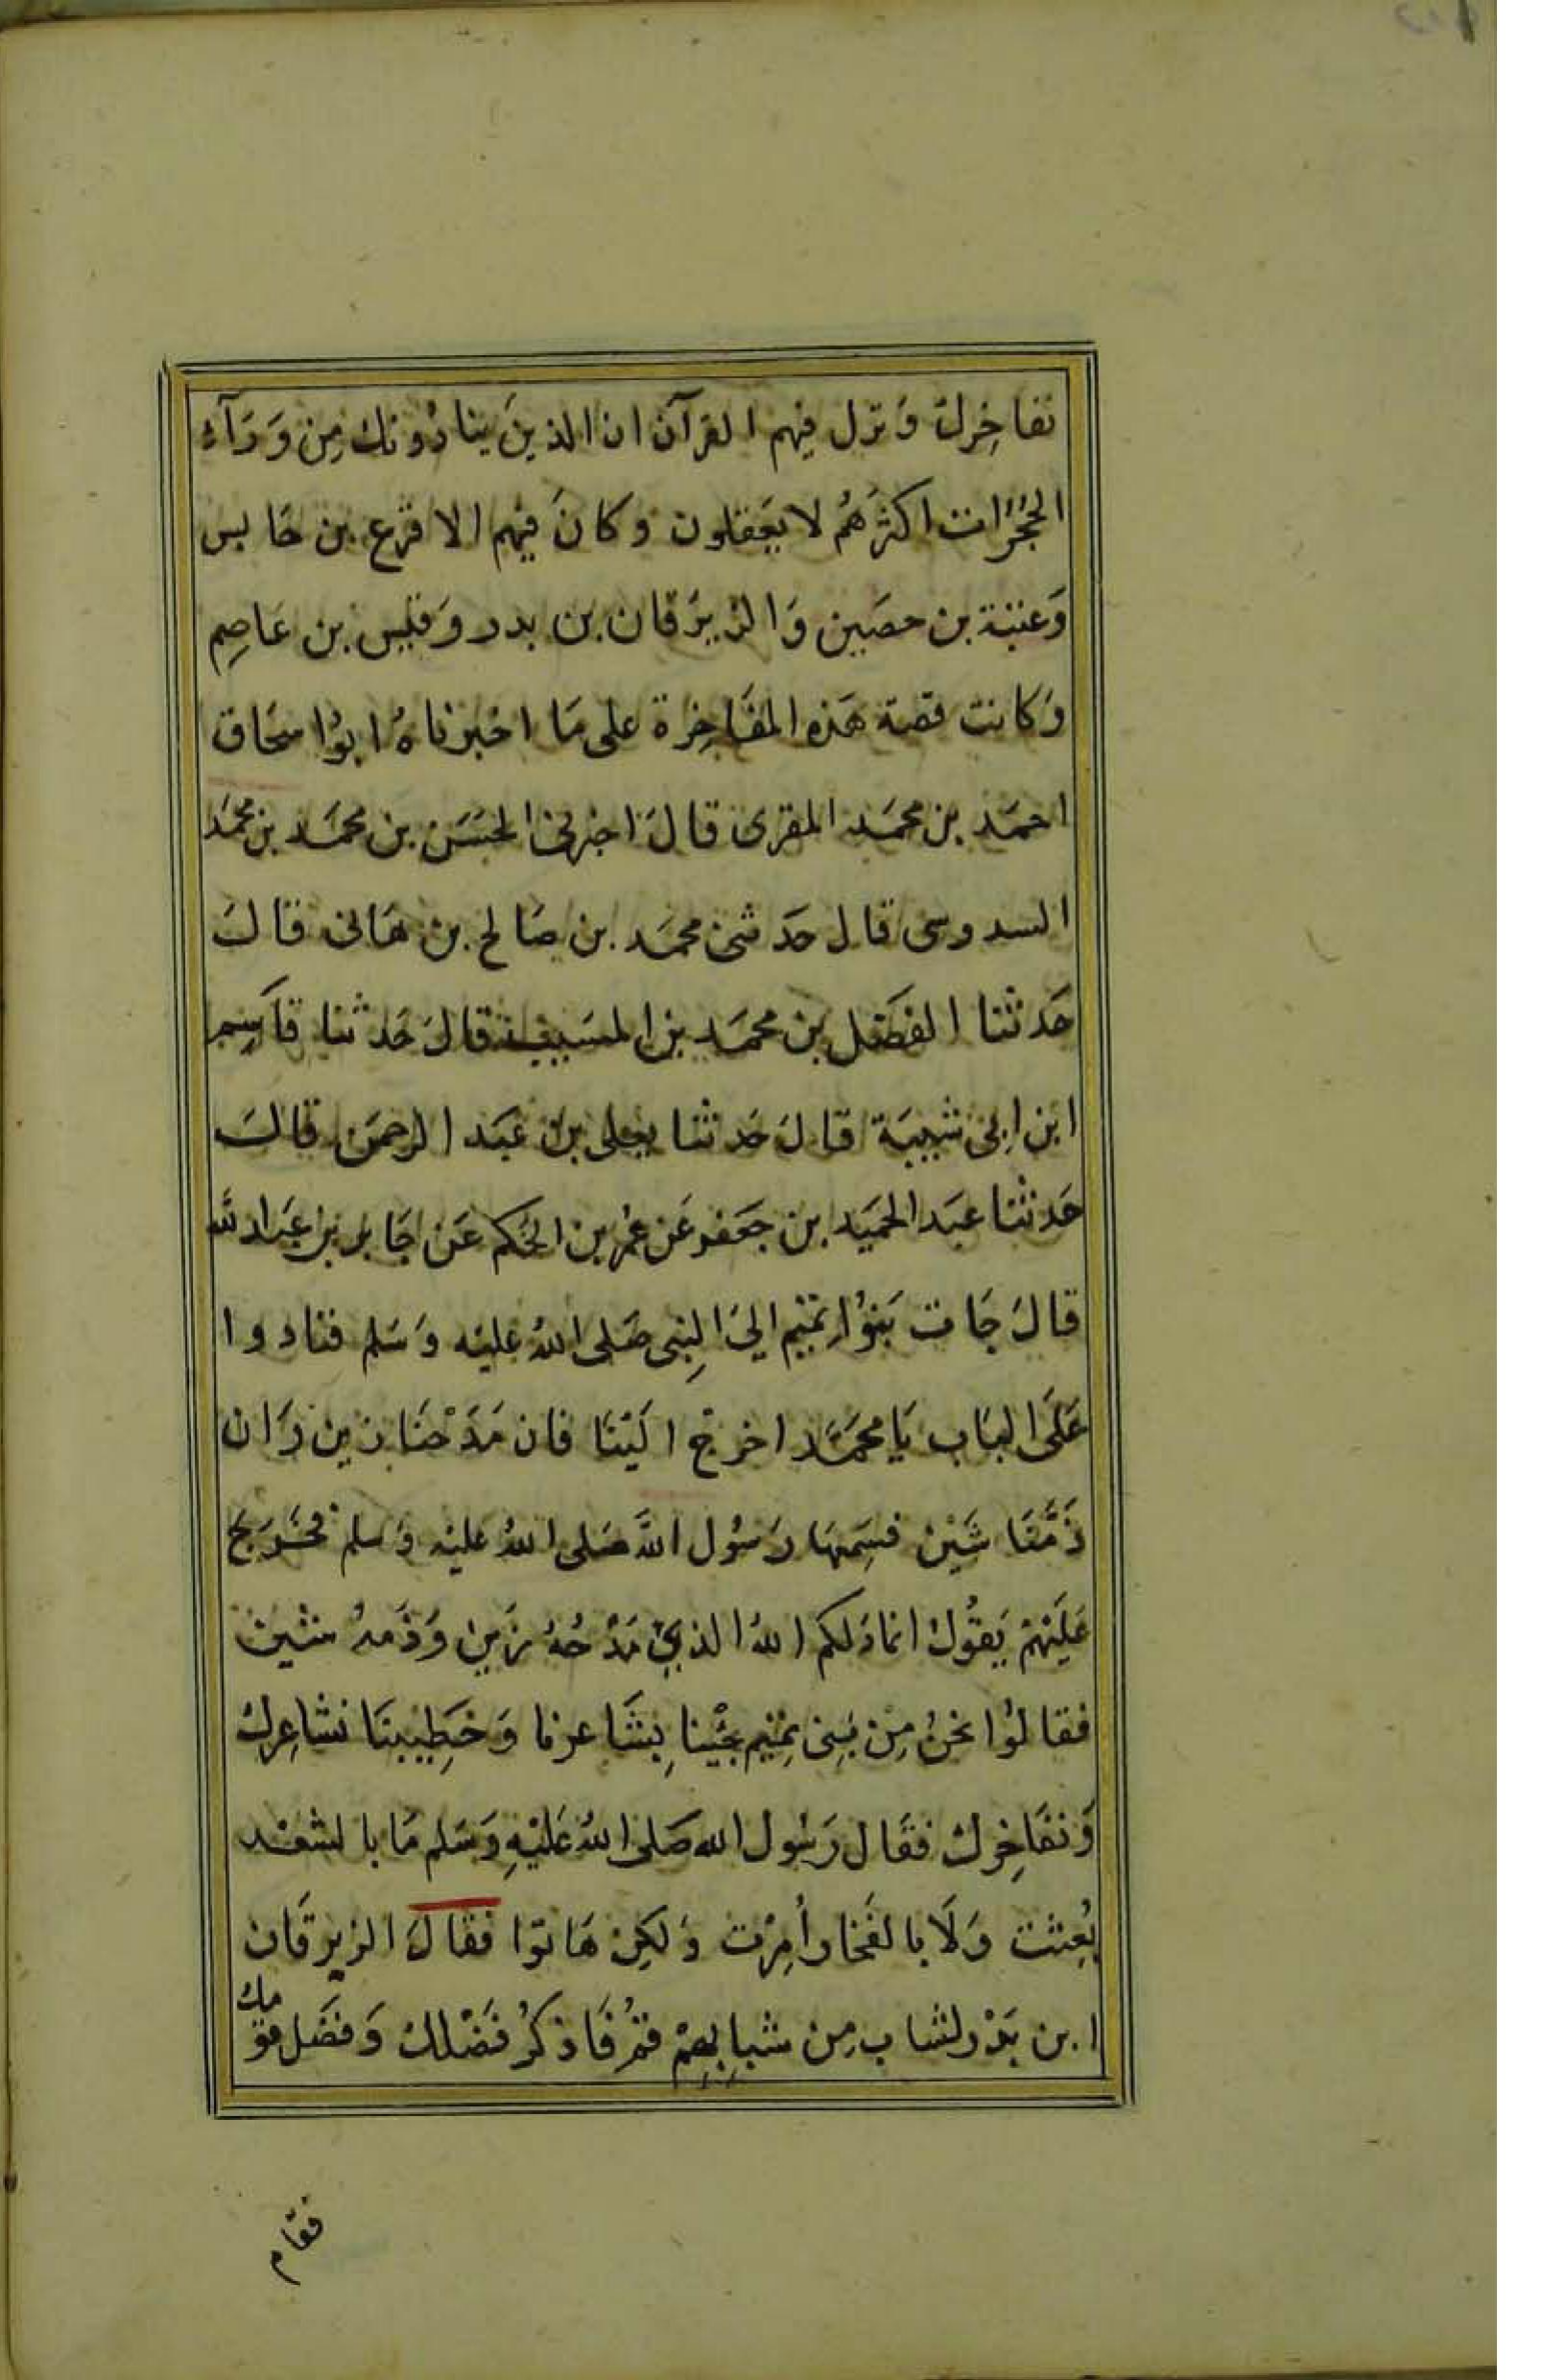 نفاخرك وَنزل فيهم القرآن ان الذينَ ينادُونك مِن وَرَآء
الحُجُرُات اكثرَهُم لا يعَقلون وكانَ فيهم الاقرع بن حَابس
وَعنبة بن حصَين وَالزبرَقان بن بدر وَقيس بن عَاصِم
وَكانت قصة هَذه المفَاخِرة على مَا اخبرناهُ ابوُاسحَاق
احمَد بن محمَد المقرى قالَ اخبرنى الحسَن بن محمَد بن محمَد
السدوسى قال حَدثنى محمَد بن صَالح بن هَانى قالَ
حَدثنا الفضَل بن محمَد بن المسَيب قالَ حَدثنا قاسِم
ابن ابى شيبَة قالَ حَدثنا يعلى بن عَبَد الرحمَن قالَ
حَدثنا عبَد الحمَيد بن جعَفر عَن عمُر بن الحكم عَن جَابر بن عبَد الله
قالَ جَات بَنوُا تميم الىَ النِبى صَلى اللهُ عليه وَسَلم فنادوا
عَلَى البَاب يَا محمَّد اخرجْ اليَنَا فان مَدَحْنَا زين وَان
ذَمَّنَا شَيْن فسَمِعَهَا رَسُول اللَّه صَلى اللهُ عليْه وَسلم فخَرَج
عَلَيْهمْ يَقوُل انما ذَلكم اللهُ الذِي مَدْحُهُ زَين وَذَمهُ شين
فقالوُا نحنُ مِنْ بَنِى تمَيِم جئْينا بِشَاعرنا وَخَطِيبنَا نشاعِركَ
وَنفَاخِرك فقَال رَسُول الله صَلى اللهُ عَليْهِ وَسَلم مَا بالشعْر
بُعِثت وَلَا بالفَخار أُمِرْت وَلكِن هَاتوا فقالَ الزبرقَان
ابن بَدْر لشاب مِن شبابِهِمْ قمُ فَاذكرُ فضْلك وَفضَل قومك
فقام